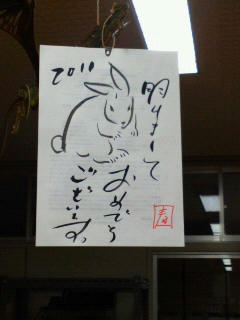 2011
明けまして
おめでとう
ございます。
春